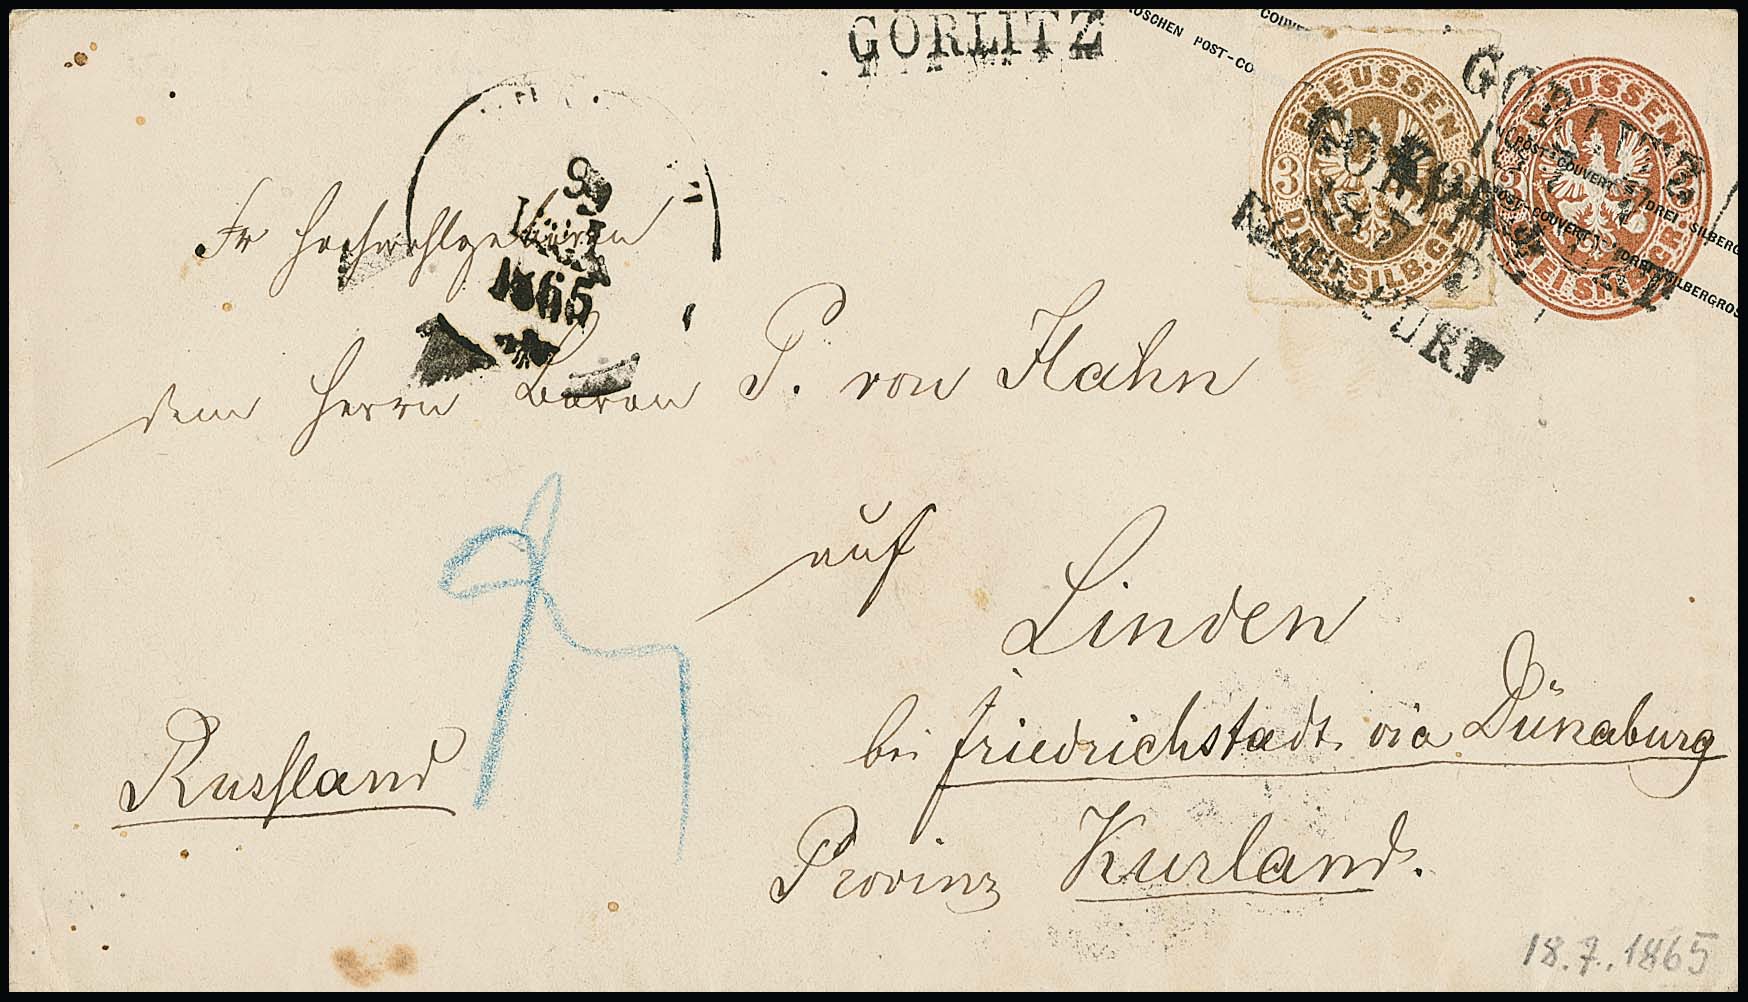 GÖRLITZ
ROSCHEN POST-COUVERT
PREUSSEN
3 DREI SILB. GR. 3
PREUSSEN
DREI SILB. GR.
POST-COUVERT DREI SILBERGROS
POST-COUVERT DREI SILBERGROS
GÖRLITZ
9
1865
Sr Hochwohlgeboren
dem Herrn Baron P. von Hahn
auf
Linden
bei Friedrichstadt via Dünaburg
Russland
Provinz Kurland.
18.7.1865